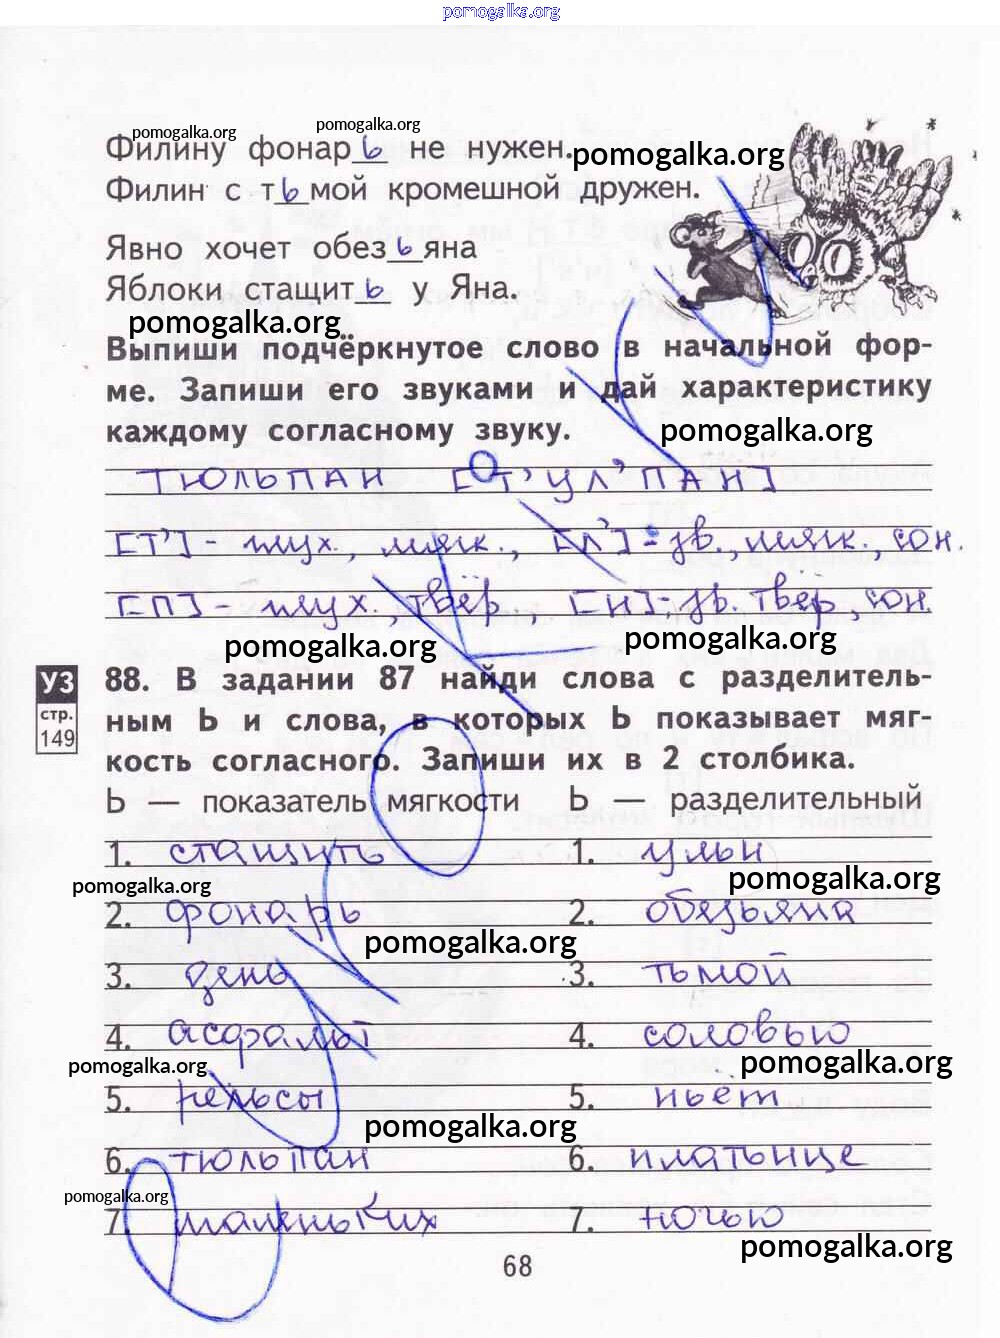 pomogalka.org
pomogalka.org pomogalka.org
Филину фонарь не нужен. pomogalka.org
Филин с тьмой кромешной дружен.
Явно хочет обезьяна
Яблоки стащить у Яна.
pomogalka.org
Выпиши подчёркнутое слово в начальной фор-
ме. Запиши его звуками и дай характеристику
каждому согласному звуку.
pomogalka.org
тюльпан [т'ул'пан]
[т'] - глух., мягк., [л'] - зв., мягк., сон.
[п] - глух., твёр, [н] - зв. твёр, сон.
pomogalka.org pomogalka.org
УЗ
стр.
149
88. В задании 87 найди слова с разделитель-
ным Ь и слова, в которых Ь показывает мяг-
кость согласного. Запиши их в 2 столбика.
Ь — показатель мягкости Ь — разделительный
1. стащить 1. ульи
pomogalka.org pomogalka.org
2. фонарь 2. обезьяна
pomogalka.org
3. день 3. тьмой
4. асфальт 4. соловью
pomogalka.org pomogalka.org
5. рельсы 5. пьёт
pomogalka.org
6. тюльпан 6. платьице
pomogalka.org
7. маленьких 7. ночью
pomogalka.org
68